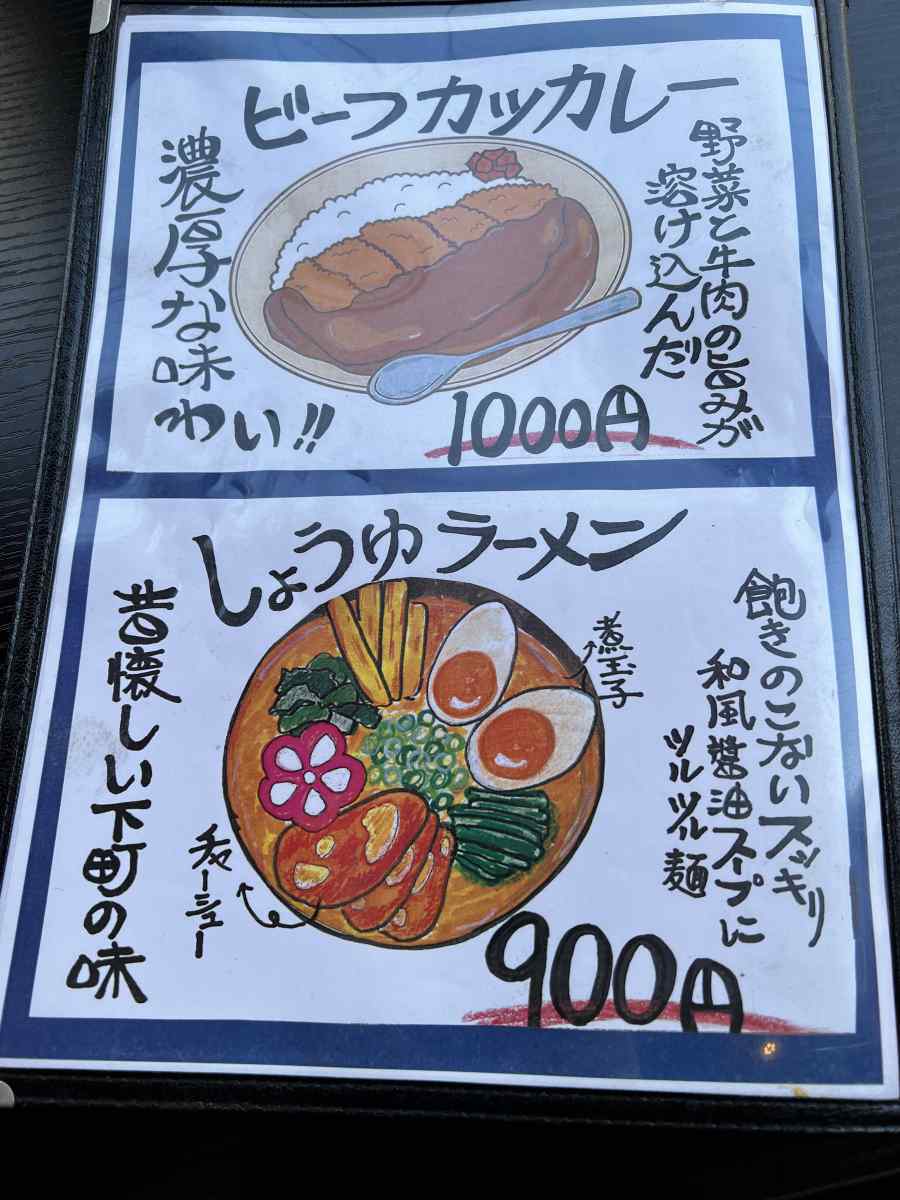 ビーフカツカレー
野菜と牛肉の旨みが
溶け込んだ
濃厚な味
わい!!
1000円
しょうゆラーメン
飽きのこないスッキリ
和風醤油スープに
ツルツル麺
煮玉子
チャーシュー
昔懐しい下町の味
900円